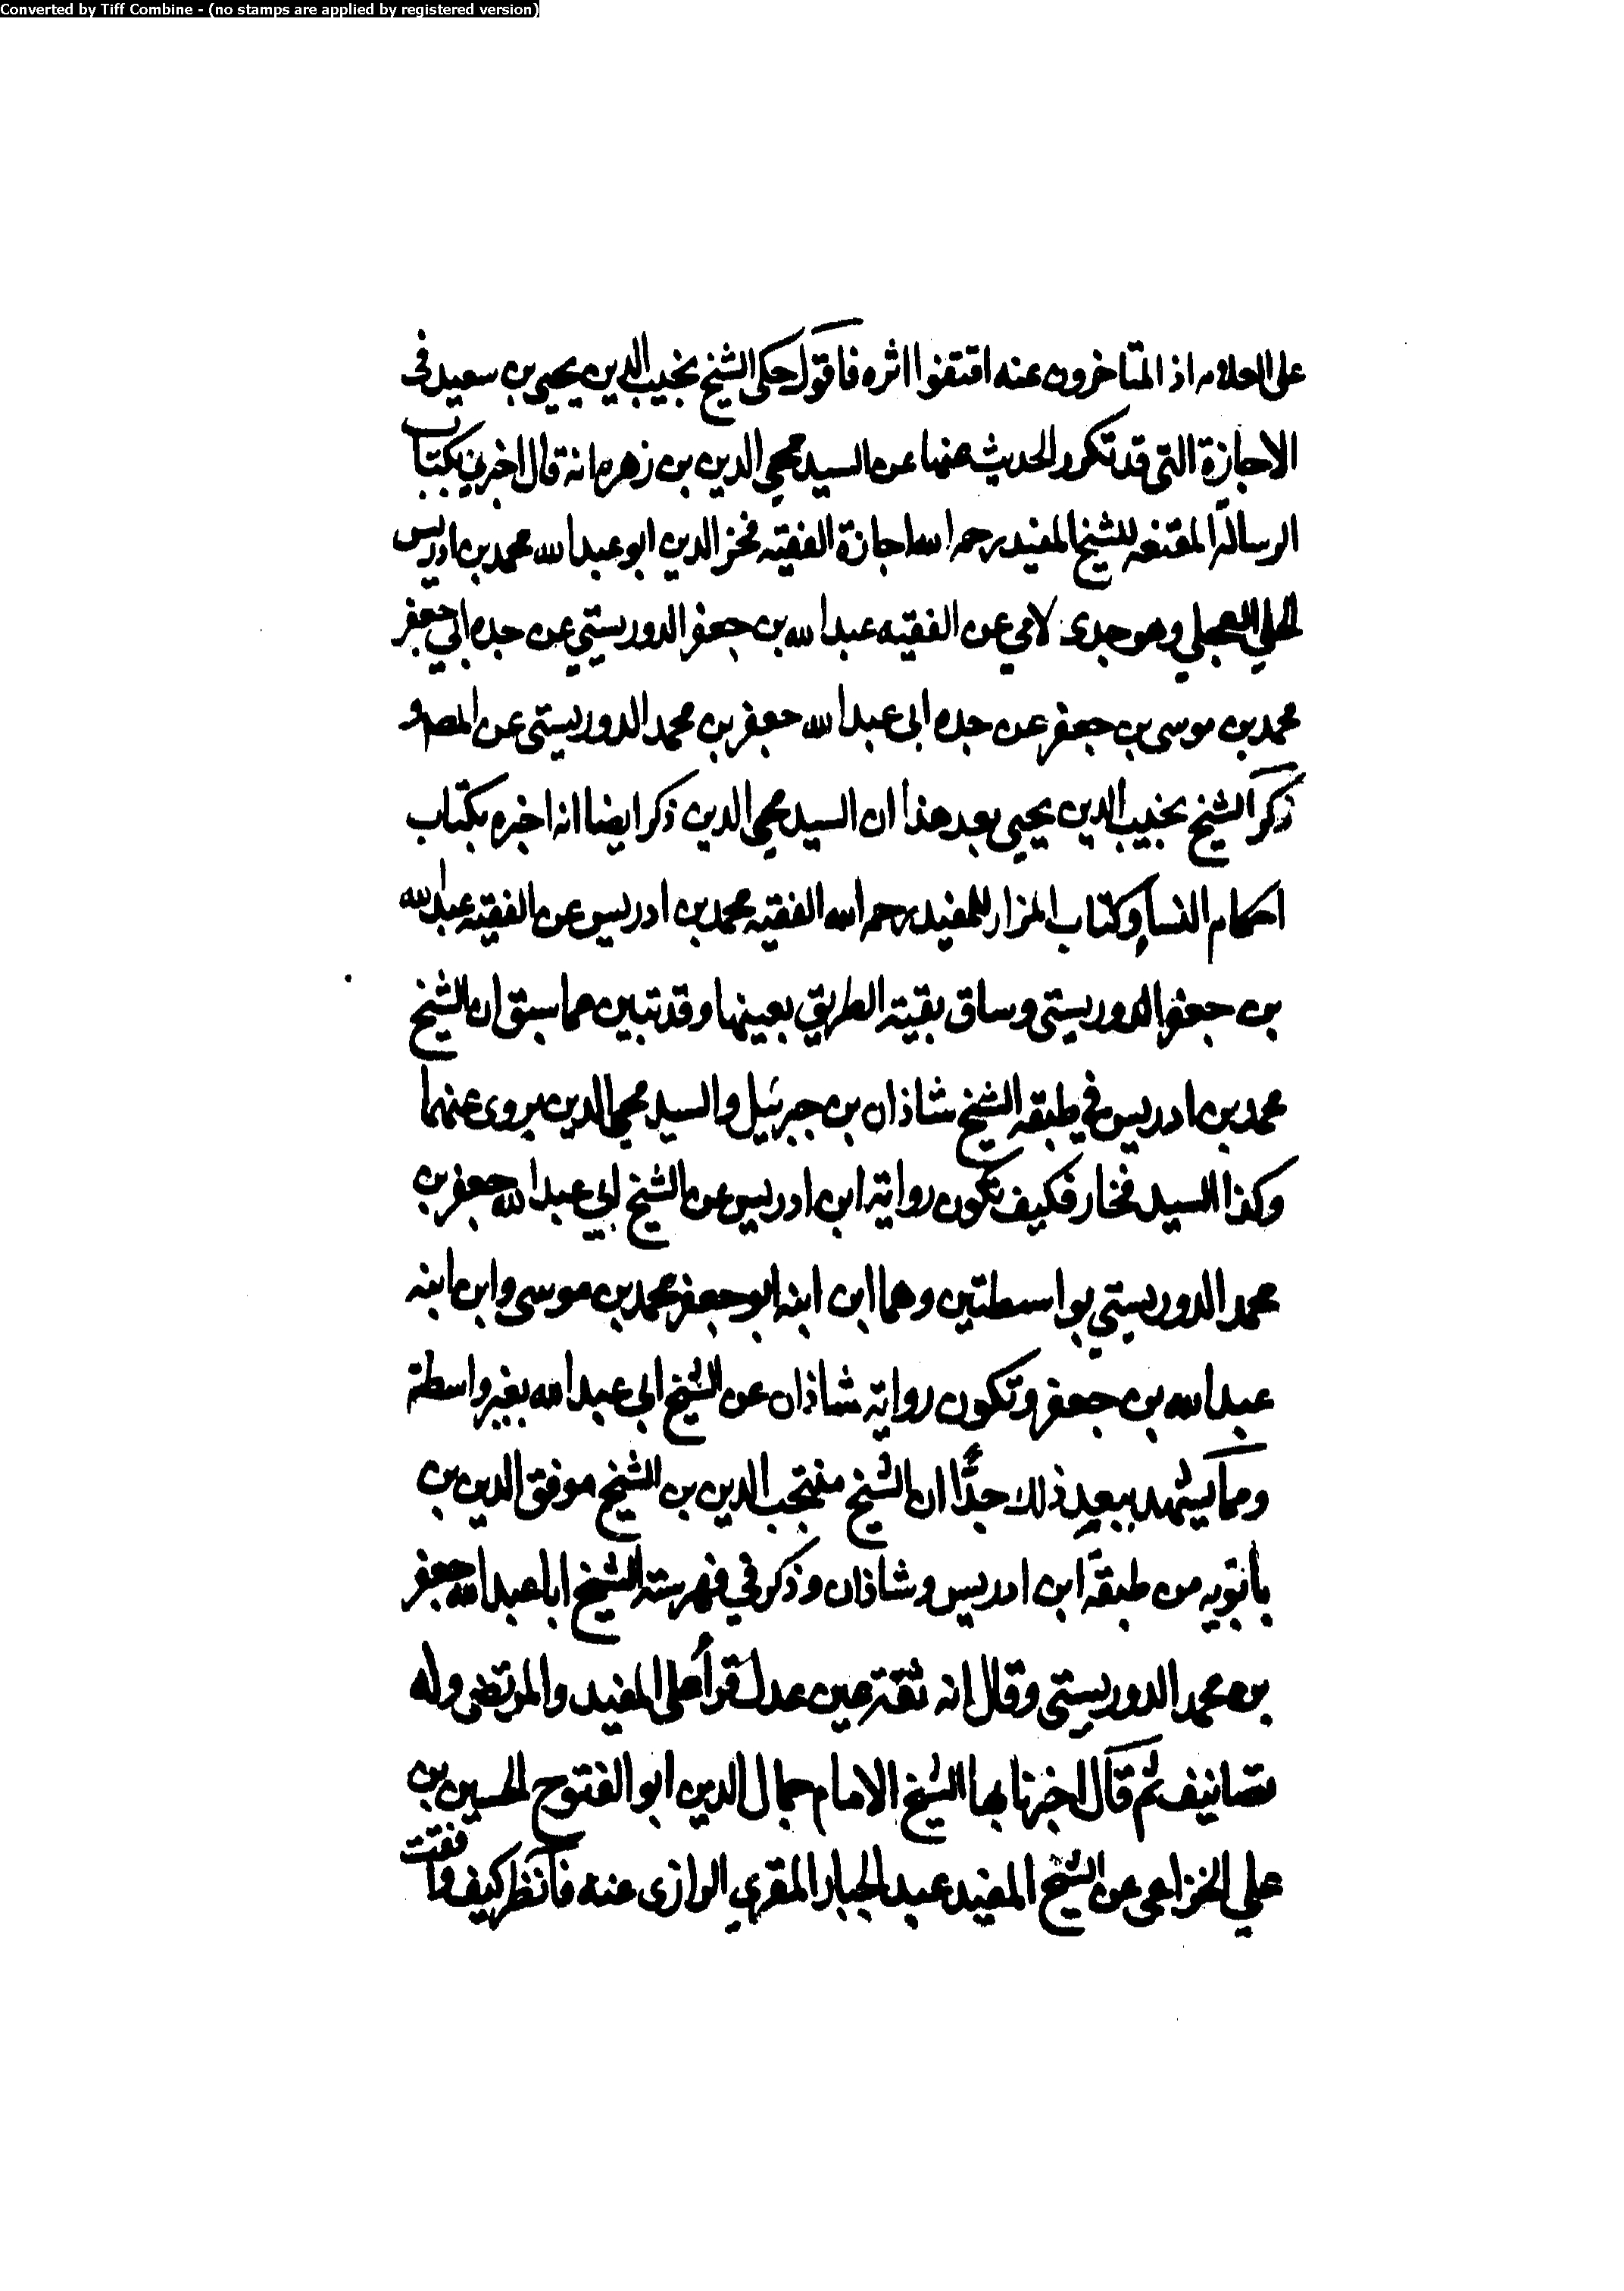 Converted by Tiff Combine - (no stamps are applied by registered version)
على العلامه اذ المتاخرون عنه اقتفوا اثره فاقول حكى الشيخ نجيب الدين يحيى بن سعيد فى
الاجازة التى قد تكرر الحديث عنها عن السيد محيي الدين بن زهره انه قال اخبرني بكتاب
الرسالة المقنعه للشيخ المفيد رحمه الله اجازة الفقيه فخر الدين ابو عبد الله محمد بن ادريس
الحلي العجلي وهو جدى لامي عن الفقيه عبد الله بن جعفر الدوريستي عن جده ابي جعفر
محمد بن موسى بن جعفر عن جده ابى عبد الله جعفر بن محمد الدوريستى عن المصـ و
ذكر الشيخ نجيب الدين يحيى بعد هذا ان السيد محيي الدين ذكر ايضا انه اخبره بكتاب
احكام النساء وكتاب المزار للمفيد رحمه الله الفقيه محمد بن ادريس عن الفقيه عبد الله
بن جعفر الدوريستى وساق بقية الطريق بعينها وقد تبين مما سبق ان الشيخ
محمد بن ادريس في طبقه الشيخ شاذان بن جبرئيل والسيد محيي الدين يروى عنهما
وكذا السيد فخار فكيف تكون رواية ابن ادريس عن الشيخ ابي عبد الله جعفر بن
محمد الدوريستي بواسطتين وهما ابن ابنه ابو جعفر محمد بن موسى وابن ابنه
عبد الله بن جعفر وتكون رواية شاذان عن الشيخ ابى عبد الله بغير واسطة
ومما يشهد ببعد ذلك جدًّا ان الشيخ منتجب الدين بن الشيخ موفق الدين بن
بانويه من طبقة ابن ادريس وشاذان وذكر في فهرسته الشيخ ابا عبد الله جعفر
بن محمد الدوريستى وقال انه ثقة عين عدل قرأ على المفيد والمرتضى وله
تصانيف ثم قال اخبرنا بها الشيخ الامام جمال الدين ابو الفتوح الحسين بن
علي الخزاعى عن الشيخ المفيد عبد الجبار المقري الرازى عنه فانظر كيف وافقت